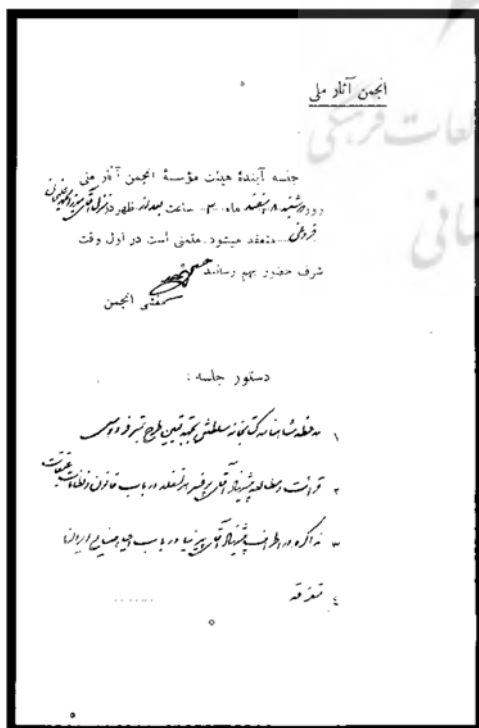 انجمن آثار ملی
جلسه آیندهٔ هیئت مؤسسهٔ انجمن آثار ملی
روز دوشنبه ۸ اسفند ماه ۳ ساعت بعد از ظهر در منزل آقای میرزا محمد علیخان
فروغی منعقد میشود. متمنی است در اول وقت
شرف حضور بهم رسانند
منشی انجمن
دستور جلسه :
۱ ملاحظه شاهنامه کتابخانه سلطنتی بجهة تعیین طرح قبر فردوسی
۲ قرائت و مطالعه پیشنهاد آقای پرفسر هرتسفلد در باب قانون و نظامات عتیقات
۳ مذاکره در اطراف پیشنهاد آقای پیرنیا در باب احیاء صنایع ایران
۴ متفرقه ......
لعات فرهنگی